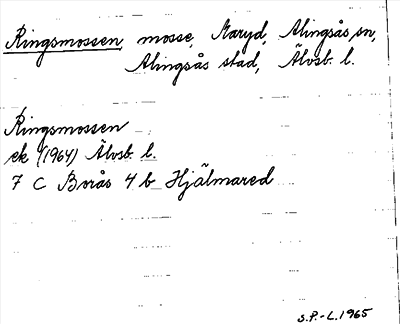 Ringsmossen, mosse, Maryd, Alingsås sn,
Alingsås stad, Älvsb. l.
Ringsmossen
ek (1964) Älvsb. l.
7 C Borås 4 b Hjälmared
S.P.-L. 1965